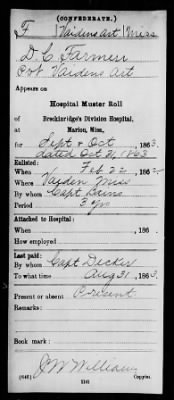 (CONFEDERATE.)
F Vaidens art Miss
D. C. Farmer
Pvt Vaidens Art
Appears on
Hospital Muster Roll
of
Breckinridge's Division Hospital,
at
Marion, Miss.,
for Sept & Oct, 1863.
dated Oct 31, 1863
Enlisted:
When Feb 22, 1862.
Where Vaiden Miss
By whom Capt
Period 3 yrs
Attached to Hospital:
When, 186 .
How employed
Last paid:
By whom Capt Decker
To what time Aug 31, 1863.
Present or absent Present
Remarks:
Book mark:
J W William
(646) Copyist.